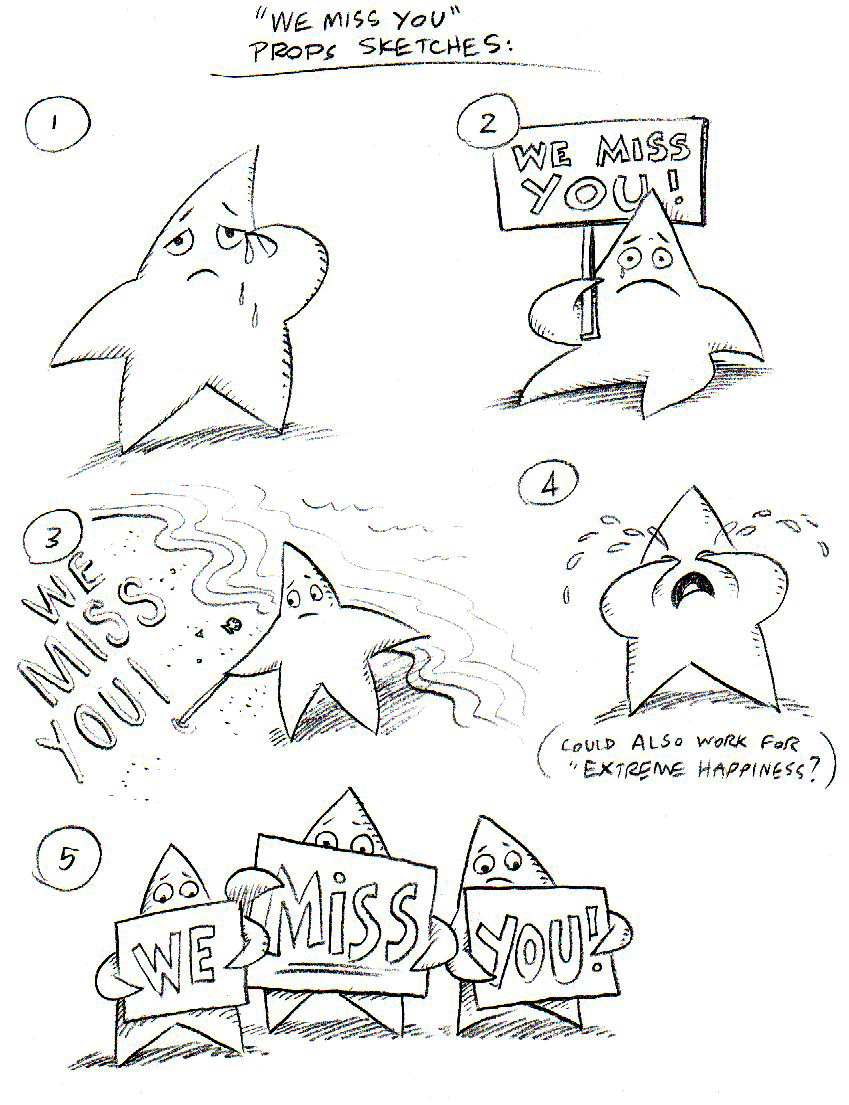 "WE MISS YOU"
PROPS SKETCHES:
1
2
WE MISS
YOU!
3
WE
MISS
YOU!
4
(COULD ALSO WORK FOR
"EXTREME HAPPINESS?)
5
WE
MiSS
YOU!